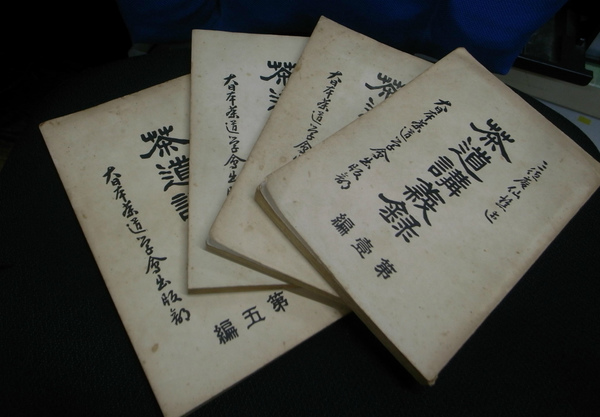 茶道講義録
大日本茶道学会出版部
第壹編
茶
大日本茶道学会出版
茶
大日本茶道学会
茶道講
大日本茶道学会出版部
第五編